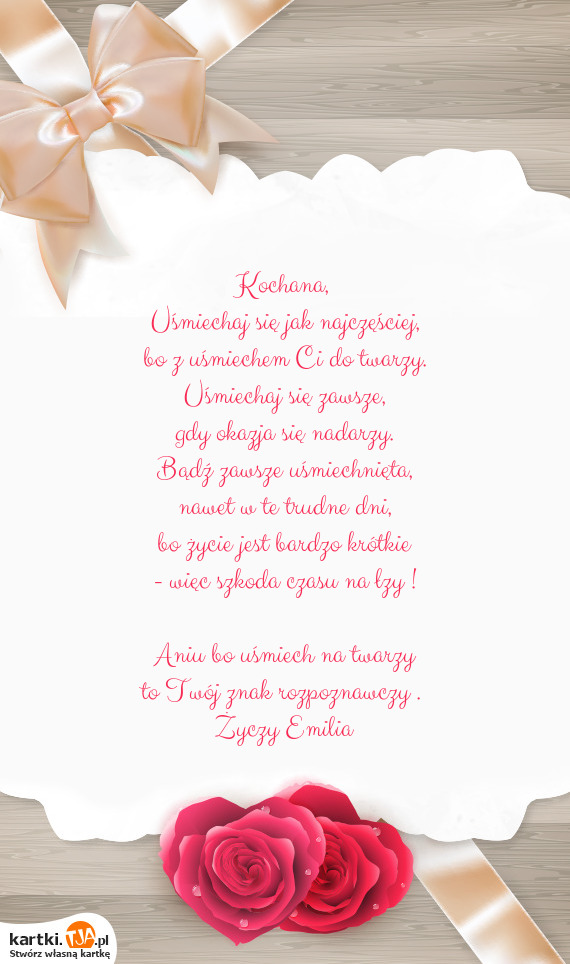 Kochana,
Uśmiechaj się jak najczęściej,
bo z uśmiechem Ci do twarzy.
Uśmiechaj się zawsze,
gdy okazja się nadarzy.
Bądź zawsze uśmiechnięta,
nawet w te trudne dni,
bo życie jest bardzo krótkie
- więc szkoda czasu na łzy !
Aniu bo uśmiech na twarzy
to Twój znak rozpoznawczy .
Życzy Emilia
kartki.TJA.pl
Stwórz własną kartkę